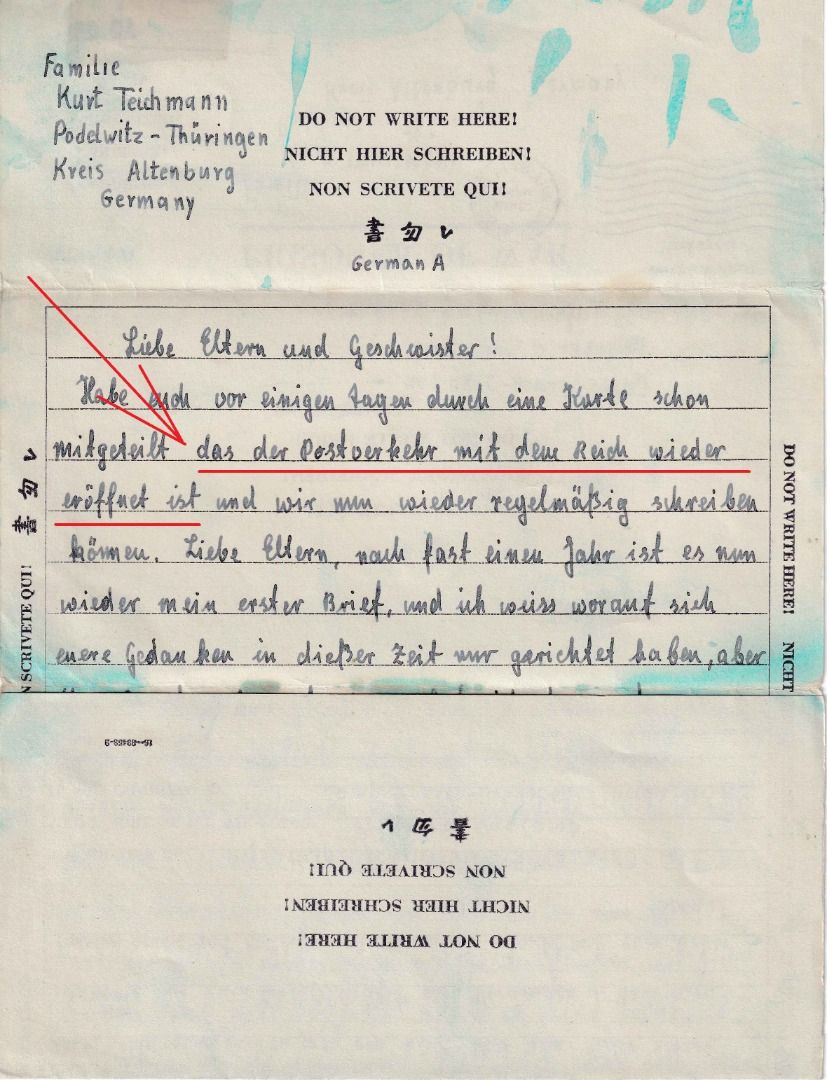 Familie
Kurt Teichmann
Podelwitz - Thüringen
Kreis Altenburg
Germany
DO NOT WRITE HERE!
NICHT HIER SCHREIBEN!
NON SCRIVETE QUI!
書勿レ
German A
Liebe Eltern und Geschwister!
Habe euch vor einigen Tagen durch eine Karte schon
mitgeteilt das der Postverkehr mit dem Reich wieder
eröffnet ist und wir nun wieder regelmäßig schreiben
können. Liebe Eltern, nach fast einen Jahr ist es nun
wieder mein erster Brief, und ich weiss worauf sich
euere Gedanken in dießer Zeit nur gerichtet haben, aber
書勿レ
N SCRIVETE QUI!
DO NOT WRITE HERE! NICHT
16—63488-3
書勿レ
NON SCRIVETE QUI!
NICHT HIER SCHREIBEN!
DO NOT WRITE HERE!